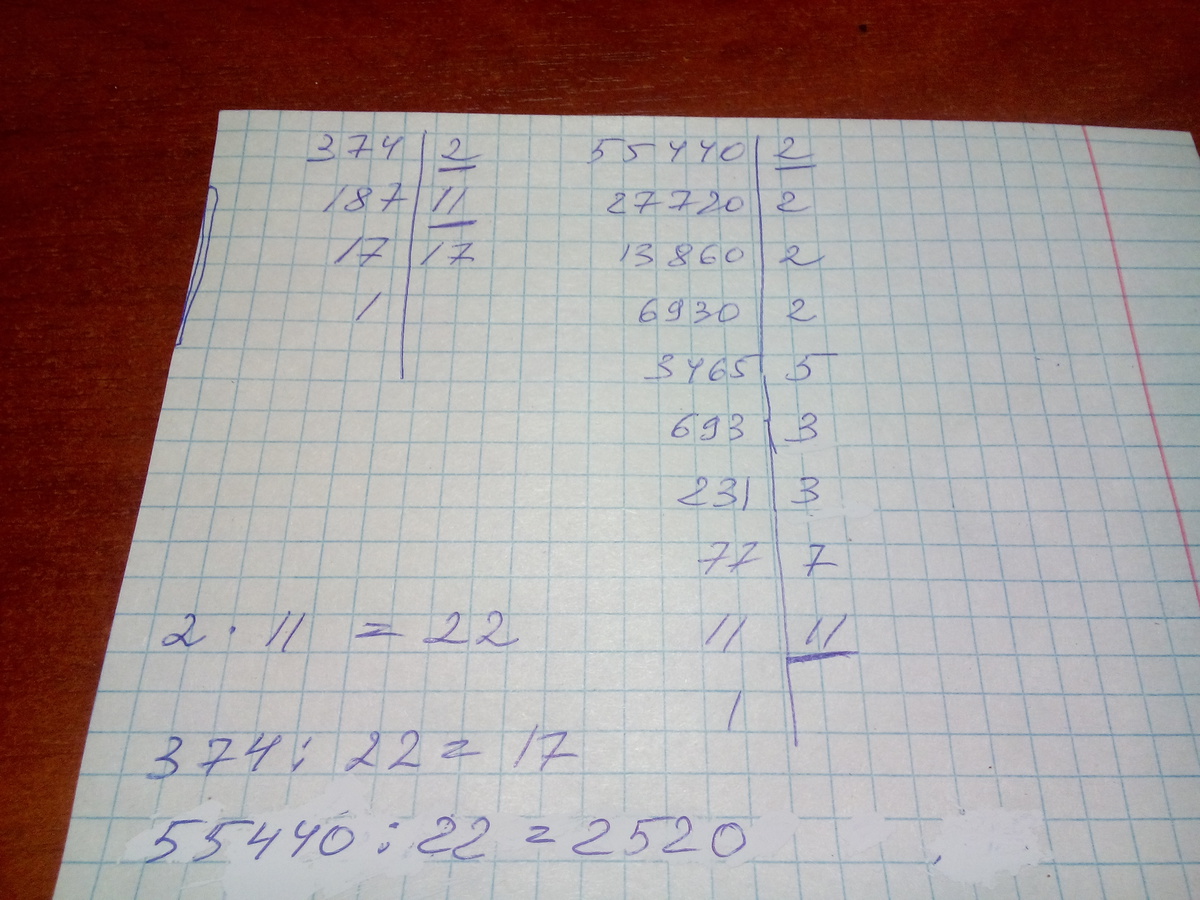 374 | 2
187 | 11
17 | 17
1 |
55440 | 2
27720 | 2
13860 | 2
6930 | 2
3465 | 5
693 | 3
231 | 3
77 | 7
11 | 11
1 |
2 · 11 = 22
374 : 22 = 17
55440 : 22 = 2520